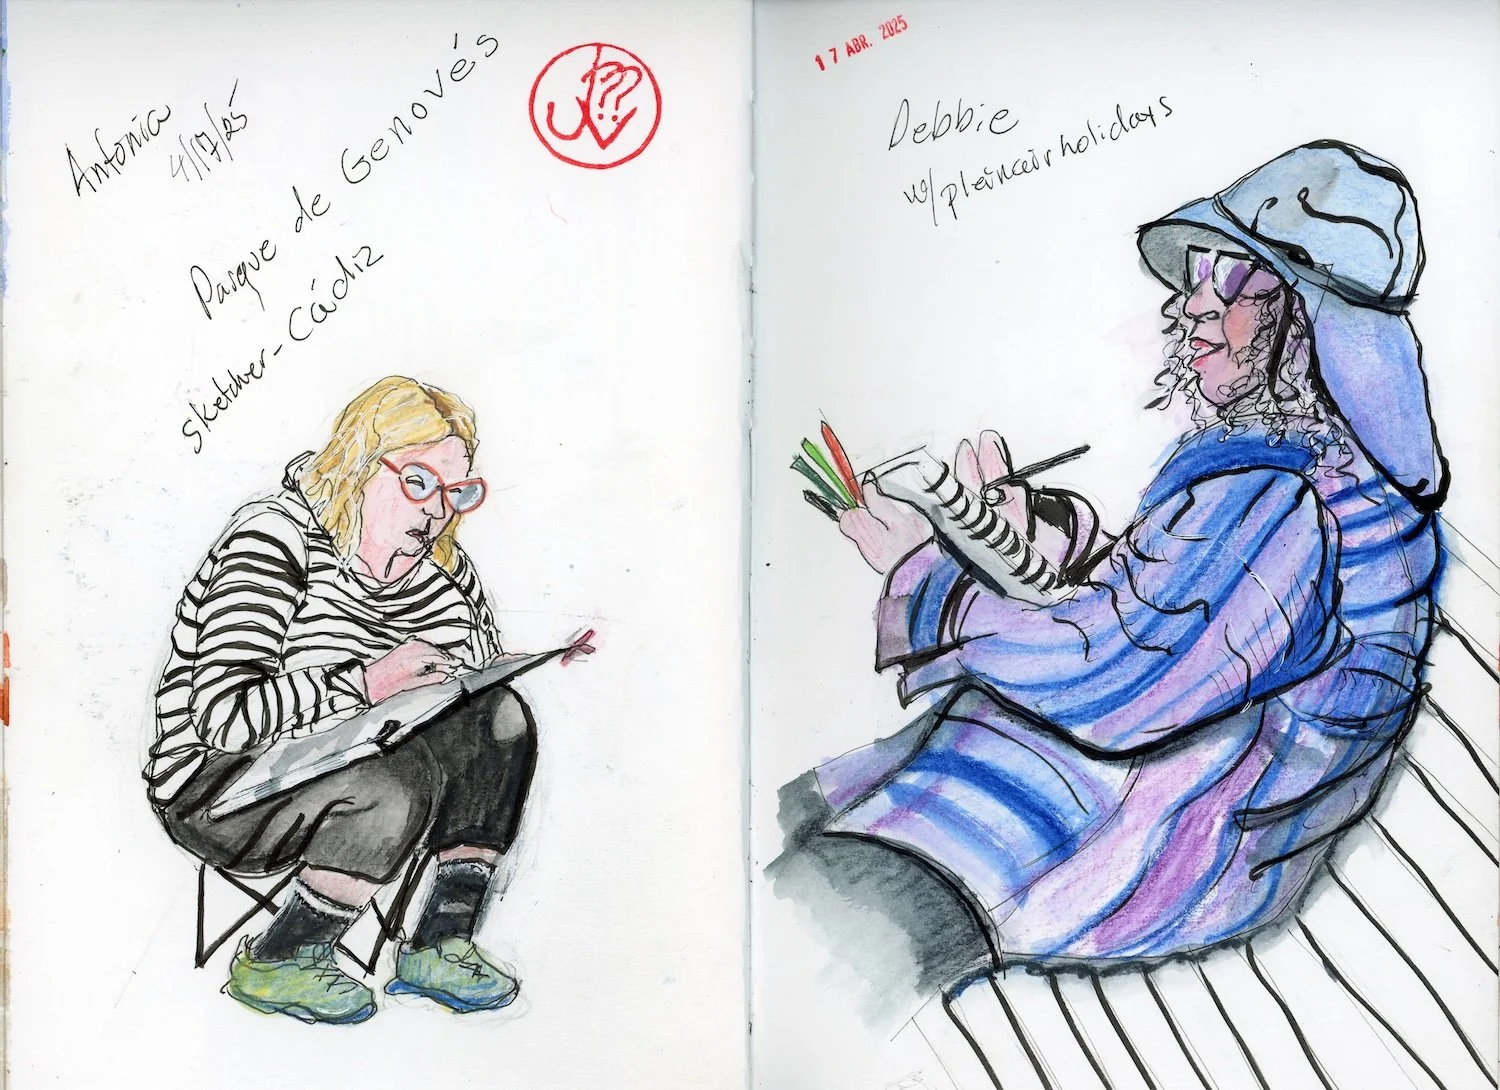 Antonia
4/17/25
Parque de Genovés
sketcher - Cádiz
17 ABR. 2025
Debbie
w/pleinairholidays